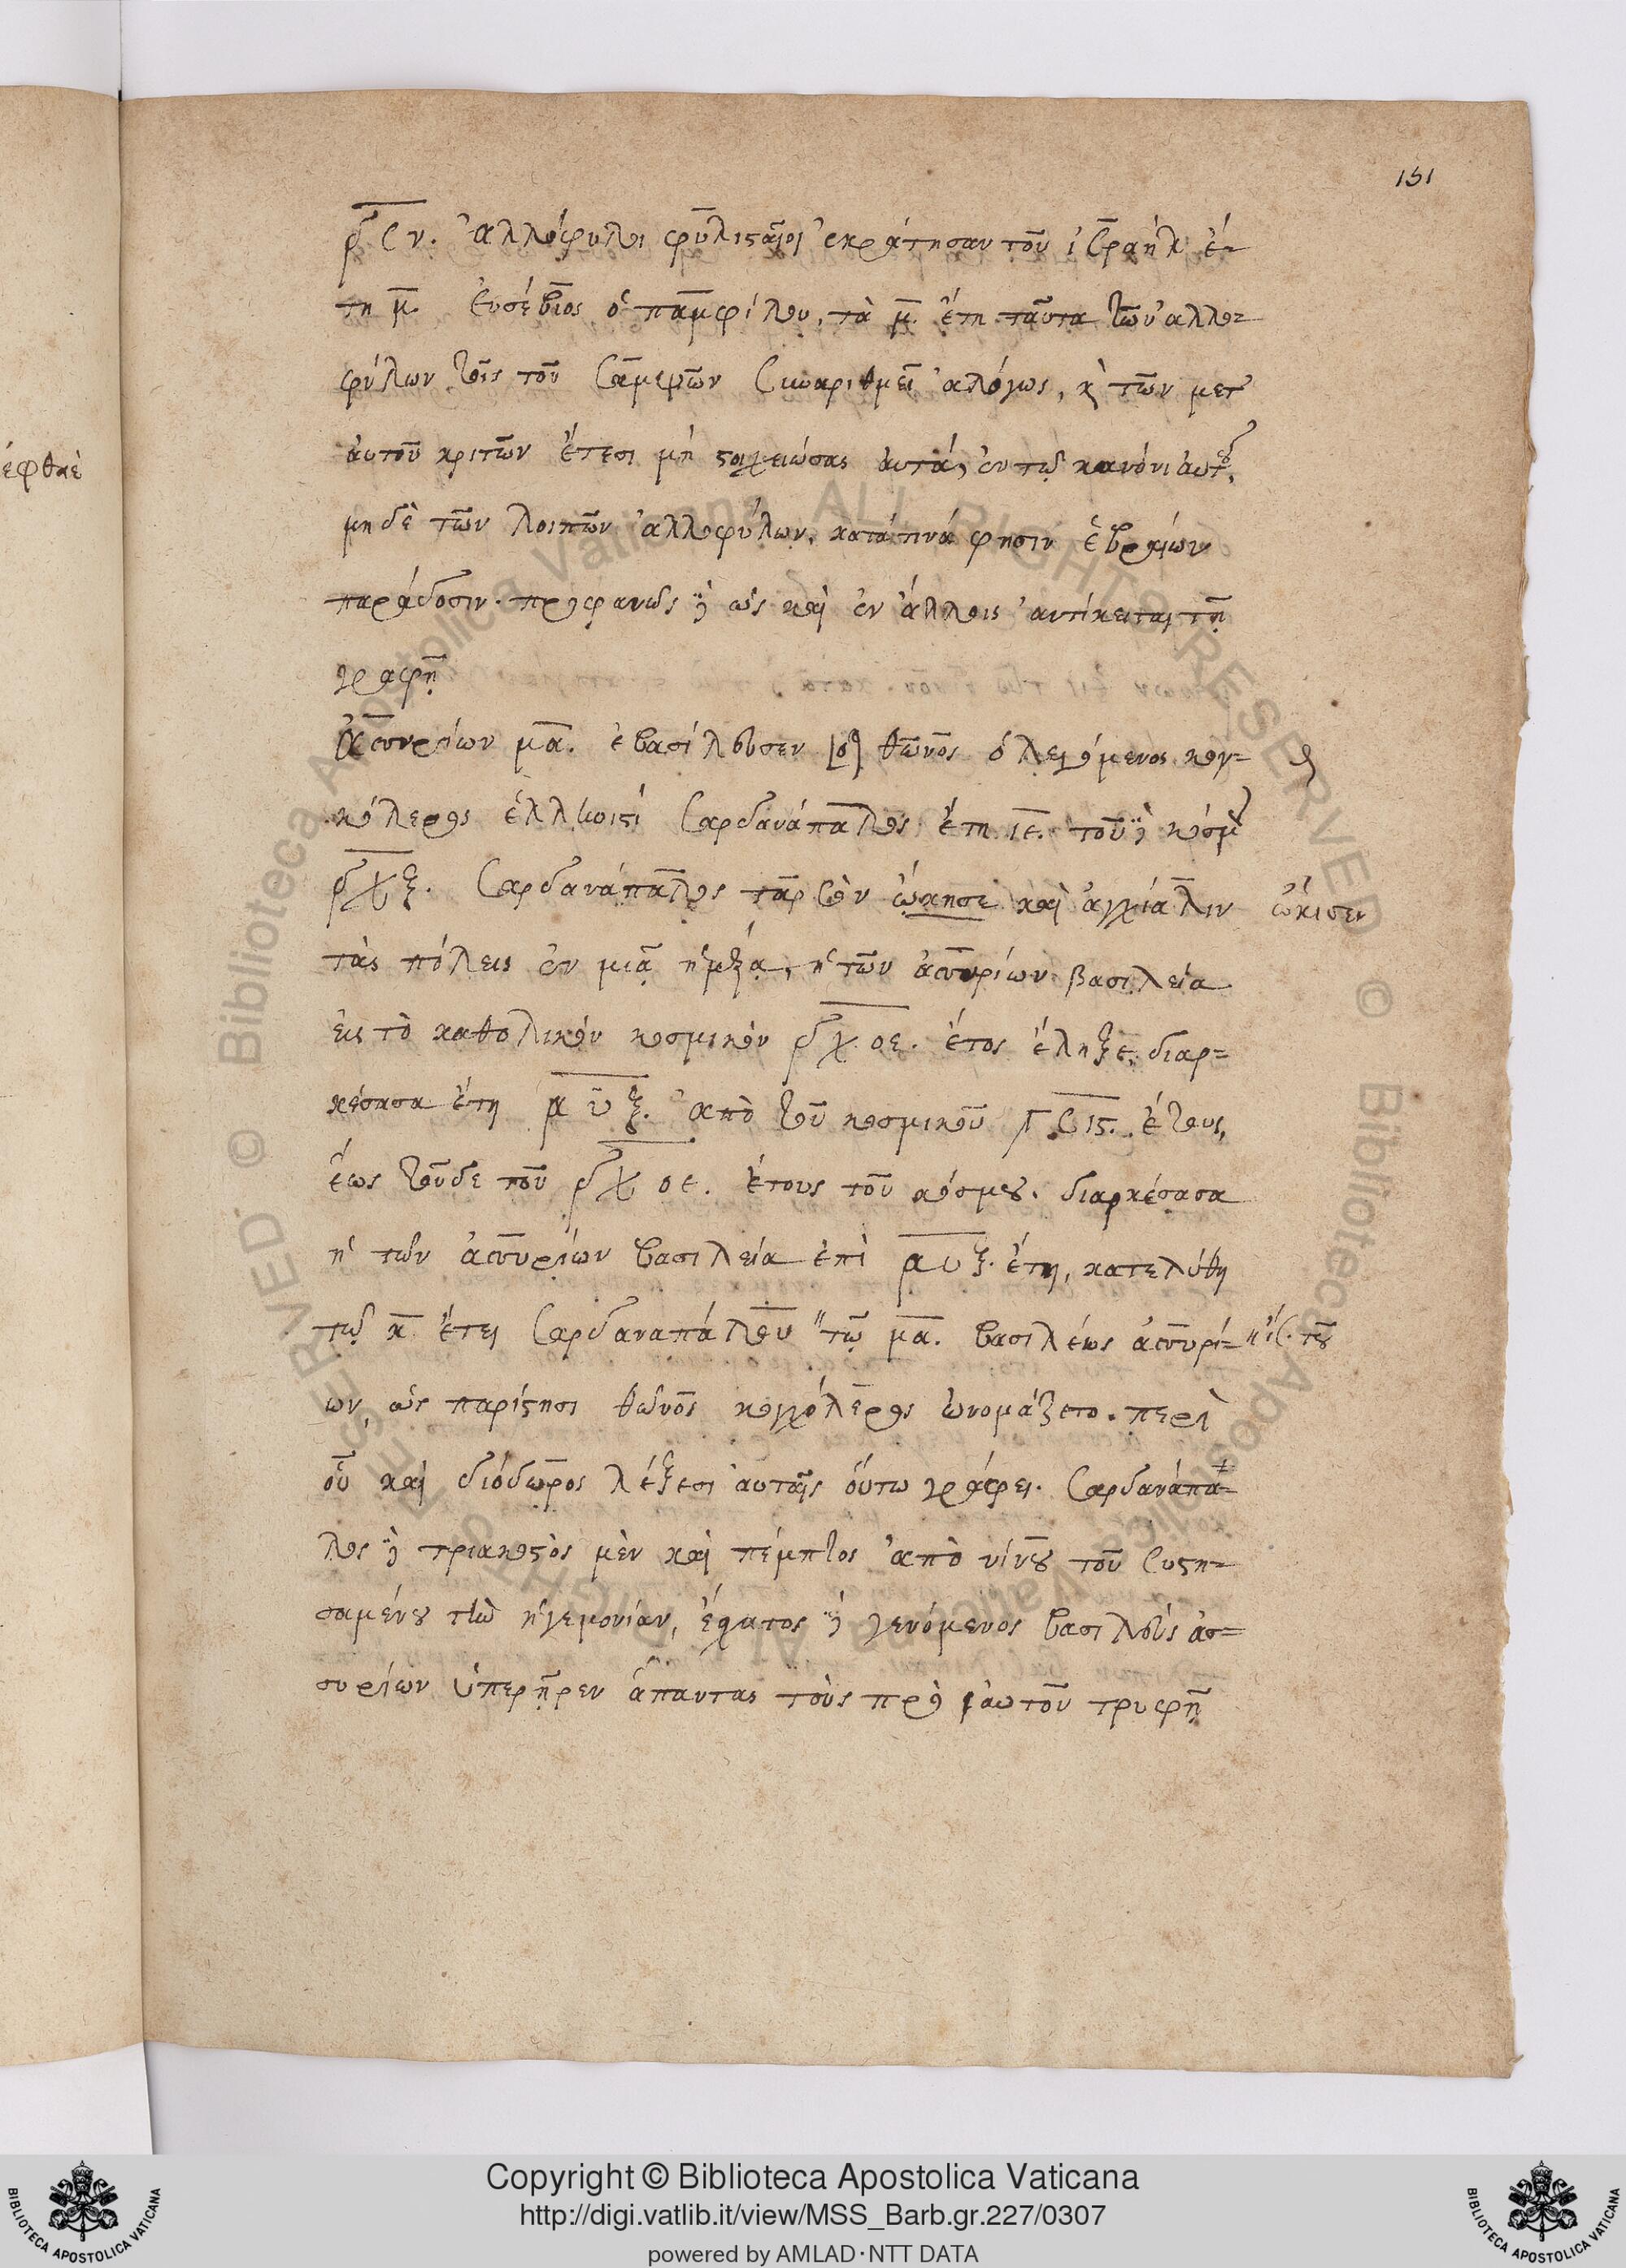 151
͵δσν. ἀλλόφυλοι φυλισταῖοι ἐκράτησαν τοῦ ἰσραὴλ ἔ-
τη μ. Ευσέβιος ὁ παμφίλου, τὰ μ. ἔτη ταῦτα τῶν ἀλλο-
φύλων τοῖς τοῦ Σαμψὼν Συναριθμεῖ ἀλόγως, κ̀ τῶν μετ
αὐτοῦ κριτῶν ἔτεσι μὴ στοιχειώσας αὐτὰ, ἐν τῷ κανόνι αὐτοῦ,
ἐφθαὲ
μηδὲ τῶν λοιπῶν ἀλλοφύλων. κατά τινά φησιν ἑβραίων
παράδοσιν. προφανῶς δὲ ὡς καὶ ἐν ἄλλοις ἀντίκειται τῇ
γραφῇ
Ἀσσυρίων μα. ἐβασίλευσεν [ὁ] θῶνος ὁ λεγόμενος κον-
κόλερος ἑλληνιστὶ Σαρδανάπαλος ἔτη ιε. τοῦ δὲ κόσμου
͵δχξ. Σαρδανάπαλος ταρσὸν ᾤκησε καὶ ἀγχιάλην
ᾤκισεν
τὰς πόλεις ἐν μιᾷ ἡμέρᾳ, ἡ τῶν ἀσσυρίων βασιλεία
εἰς τὸ καθολικὸν κοσμικὸν ͵δχοε. ἔτος ἔληξε, διαρ-
κέσασα ἔτη ͵αυξ. ἀπὸ τοῦ κοσμικοῦ ͵γσις. ἔτους,
ἕως τοῦδε τοῦ ͵δχοε. ἔτους τοῦ κόσμου. διαρκέσασα
ἡ τῶν ἀσσυρίων βασιλεία ἐπὶ ͵αυξ. ἔτη, κατελύθη
τῷ κ ἔτει Σαρδαναπάλου τῷ μα. βασιλέως ἀσσυρί-
ων, ὡς παρίστησι θῶνος κογχόλερος ὠνομάζετο. περὶ
οὗ καὶ διόδωρος λέξεσι αὐταῖς οὕτω γράφει. Σαρδανάπα-
λος δὲ τριακοστὸς μὲν καὶ πέμπτος ἀπὸ νίνου τοῦ Συστη-
σαμένου τὴν ἡγεμονίαν, ἔσχατος δὲ γενόμενος βασιλεὺς ἀσ-
συρίων ὑπερῇρεν ἅπαντας τοὺς πρὸ αὐτοῦ τρυφῇ
Copyright © Biblioteca Apostolica Vaticana
http://digi.vatlib.it/view/MSS_Barb.gr.227/0307
powered by AMLAD·NTT DATA